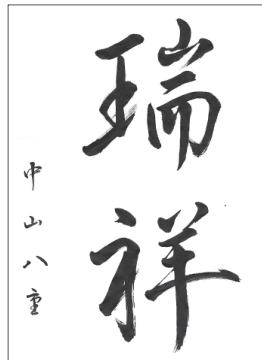 瑞祥
中山八重